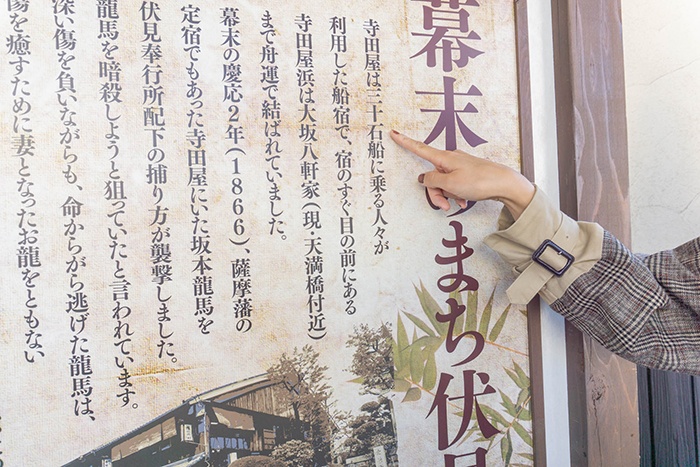 幕末のまち伏見
寺田屋は三十石船に乗る人々が
利用した船宿で、宿のすぐ目の前にある
寺田屋浜は大坂八軒家（現・天満橋付近）
まで舟運で結ばれていました。
幕末の慶応2年（1866）、薩摩藩の
定宿でもあった寺田屋にいた坂本龍馬を
伏見奉行所配下の捕り方が襲撃しました。
龍馬を暗殺しようと狙っていたと言われています。
深い傷を負いながらも、命からがら逃げた龍馬は、
傷を癒すために妻となったお龍をともない